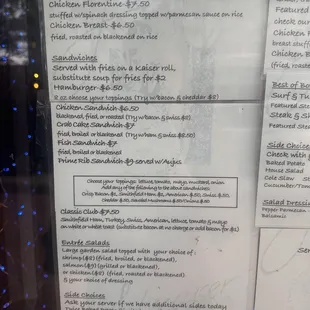 Chicken Florentine $7.50
stuffed w/spinach dressing topped w/parmesan sauce on rice
Chicken Breast $6.50
fried, roasted on blackened on rice
Sandwiches
Served with fries on a Kaiser roll,
substitute soup for fries for $2
Hamburger $6.50
8 oz choose your toppings (Try w/bacon & chedder $8)
Chicken Sandwich $6.50
blackened, fried, or roasted (Try w/bacon & swiss $8)
Crab Cake Sandwich $7
fried, broiled or blackened (Try w/bacon & swiss $8.50)
Fish Sandwich $7
fried, broiled or blackened
Prime Rib Sandwich $9 served w/Aujus
Choose your toppings: lettuce, tomato, mayo, mustard, onion
Add any of the following to the above sandwiches:
Crisp Bacon
Classic Club $7.50
Smithfield Ham, Turkey, Swiss, American, lettuce, tomato & mayo
on white or wheat toast (substitute bacon at no charge or add bacon for $1)
Entrée Salads
Large garden salad topped with your choice of:
shrimp($8) (fried, broiled, or blackened),
salmon($9) (grilled or blackened),
or chicken($8) (fried, roasted or blackened)
& your choice of dressing
Side Choices
Ask your server if we have additional sides today
Featured
check our
Chicken
breast stuff
Chicken B
(fried, roast
Best of Bo
Surf & Tu
Featured Ste
Steak & S
Featured Ste
Side Choice
Check with
Baked Potato
House Salad
Cole Slaw
Cucumber/Tom
Salad Dressing
Pepper Parmesan
Balsamic